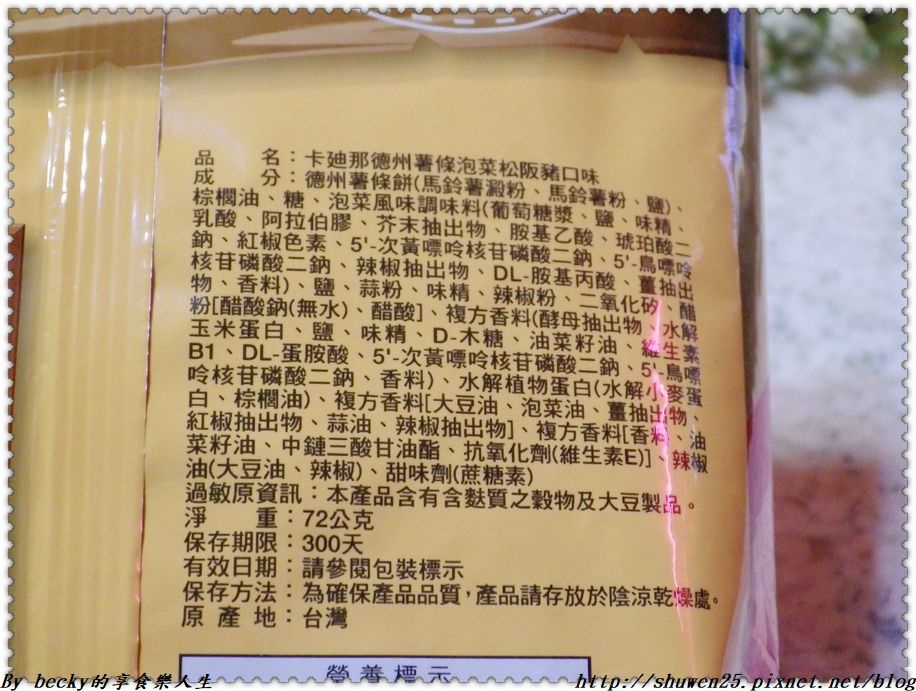 品　　名：卡廸那德州薯條泡菜松阪豬口味
成　　分：德州薯條餅(馬鈴薯澱粉、馬鈴薯粉、鹽)、
棕櫚油、糖、泡菜風味調味料(葡萄糖漿、鹽、味精、
乳酸、阿拉伯膠、芥末抽出物、胺基乙酸、琥珀酸二
鈉、紅椒色素、5'-次黃嘌呤核苷磷酸二鈉、5'-鳥嘌呤
核苷磷酸二鈉、辣椒抽出物、DL-胺基丙酸、薑抽出
物、香料)、鹽、蒜粉、味精、辣椒粉、二氧化矽、醋
粉[醋酸鈉(無水)、醋酸]、複方香料(酵母抽出物、水解
玉米蛋白、鹽、味精、D-木糖、油菜籽油、維生素
B1、DL-蛋胺酸、5'-次黃嘌呤核苷磷酸二鈉、5'-鳥嘌
呤核苷磷酸二鈉、香料)、水解植物蛋白(水解小麥蛋
白、棕櫚油)、複方香料[大豆油、泡菜油、薑抽出物、
紅椒抽出物、蒜油、辣椒抽出物]、複方香料[香料、油
菜籽油、中鏈三酸甘油酯、抗氧化劑(維生素E)]、辣椒
油(大豆油、辣椒)、甜味劑(蔗糖素)
過敏原資訊：本產品含有含麩質之穀物及大豆製品。
淨　　重：72公克
保存期限：300天
有效日期：請參閱包裝標示
保存方法：為確保產品品質，產品請存放於陰涼乾燥處。
原 產 地：台灣
營養標示
By becky的享食樂人生
http://shuwen25.pixnet.net/blog